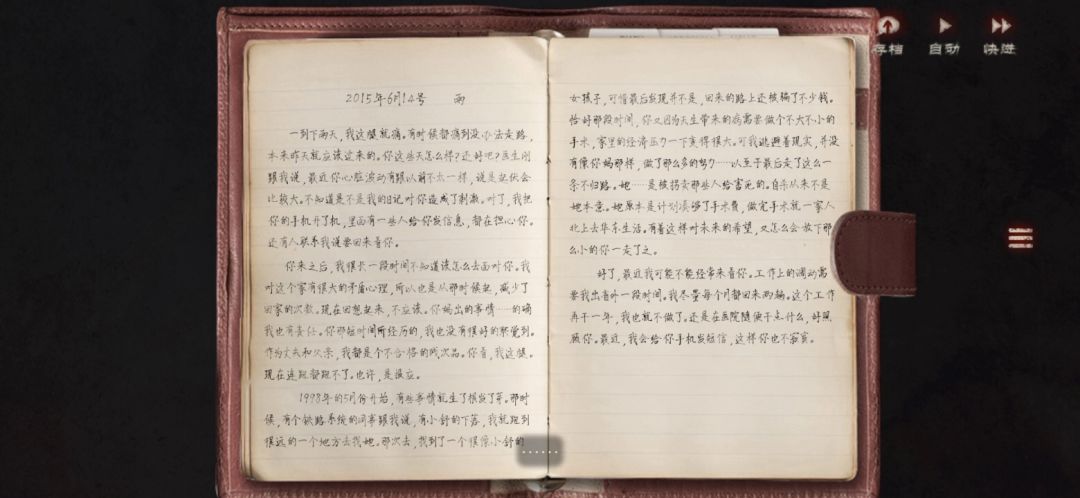 存档
自动
快进
2015年6月14号 雨
一到下雨天，我这腿就痛。有时候都痛到没办法走路，
本来昨天就应该过来的。你这些天怎么样？还好吧？医生刚
跟我说，最近你心脏波动有跟以前不太一样，说是起伏会
比较大。不知道是不是我的日记对你造成了刺激。对了，我把
你的手机开了机，里面有一些人给你发信息，都在担心你。
还有人联系我说要回来看你。
你来之后，我很长一段时间不知道该怎么去面对你。我
对这个家有很大的矛盾心理，所以也是从那时候起，减少了
回家的次数。现在回想起来，不应该。你妈出的事情……的确
我也有责任。你那短时间所经历的，我也没有很好的察觉到。
作为丈夫和父亲，我都是个不合格的残次品。你看，我这腿。
现在连跑都跑不了。也许，是报应。
1998年的5月份开始，有些事情就生了根发了芽。那时
候，有个铁路系统的同事跟我说，有小舒的下落，我就跑到
很远的一个地方去找她。那次去，找到了一个很像小舒的
女孩子，可惜最后发现并不是，回来的路上还被骗了不少钱。
恰好那段时间，你又因为天生带来的病需要做个不大不小的
手术，家里的经济压力一下变得很大。可我逃避着现实，并没
有像你妈那样，做了那么多的努力……以至于最后走了这么一
条不归路。她……是被拐卖那些人给害死的。自杀从来不是
她本意。她原本是计划凑够了手术费，做完手术就一家人
北上去华东生活。有着这样对未来的希望，又怎么会放下那
么小的你一走了之。
好了，最近我可能不能经常来看你。工作上的调动需
要我出省外一段时间。我尽量每个月都回来两趟。这个工作
再干一年，我也就不做了。还是在医院随便干点什么，好照
顾你。最近，我会给你手机发短信，这样你也不寂寞。
……